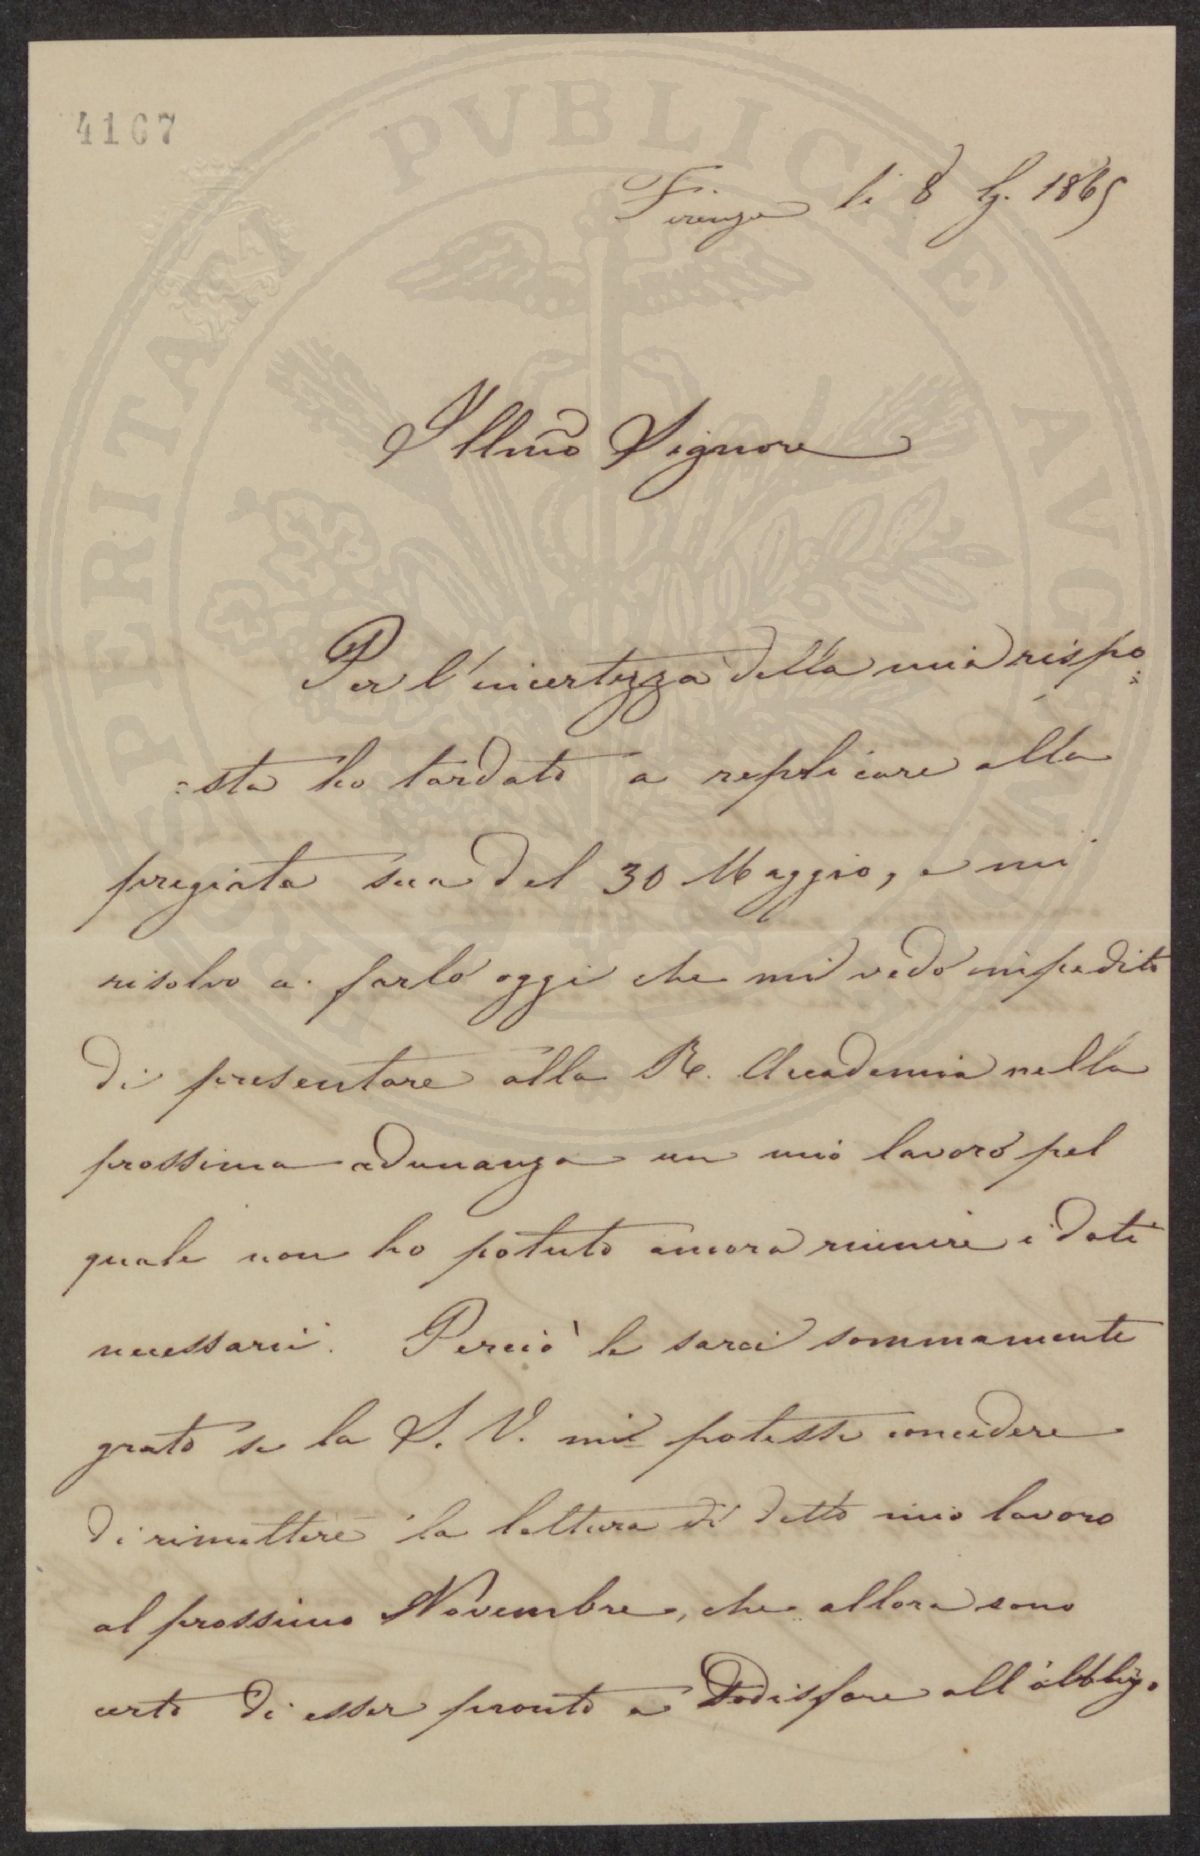 4167
Firenze li 8 G. 1865
Illmo Signore
Per l'incertezza della mia rispo=
=sta ho tardato a replicare alla
pregiata sua del 30 Maggio, e mi
risolvo a farlo oggi che mi vedo impedito
di presentare alla R. Accademia nella
prossima adunanza un mio lavoro pel
quale non ho potuto ancora riunire i dati
necessarii. Perciò le sarei sommamente
grato se la S. V. mi potesse concedere
di rimettere la lettura di detto mio lavoro
al prossimo Novembre, che allora sono
certo di esser pronto a sodisfare all'obbligo
PROSPERITATI PVBLICAE AVGENDAE